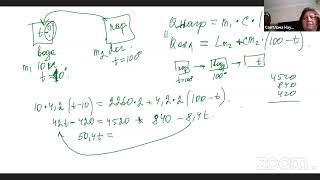 t-?
пар
вода
m₁ 10кг
t=10.
m₂ 2кг
t=100°
Qнагр = m₁ · C ·
Qохл = Lm₂ + cm₂ · (100 - t)
пар → → t
t=100° 100°
10·4,2(t-10) = 2260·2 + 4,2·2(100-t).
42t - 420 = 4520 + 840 - 8,4t
50,4t =
4520
840
420
Светлана Нау...
zoom